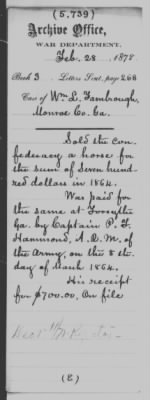 (5,739)
Archive Office,
WAR DEPARTMENT.
Feb. 28, 1878
Book 3 Letters Sent, page 268
Case of Wm L. Fambrough,
Monroe Co. Ga.
Sold the con
federacy a horse for
the sum of Seven hund
red dollars in 1864.
Was paid for
the same at Forsyth
Ga. by Captain P. F.
Hammond, A.Q.M. of
the Army, on the 8th
day of March 1864.
His receipt
for $700.00. On file
(E)